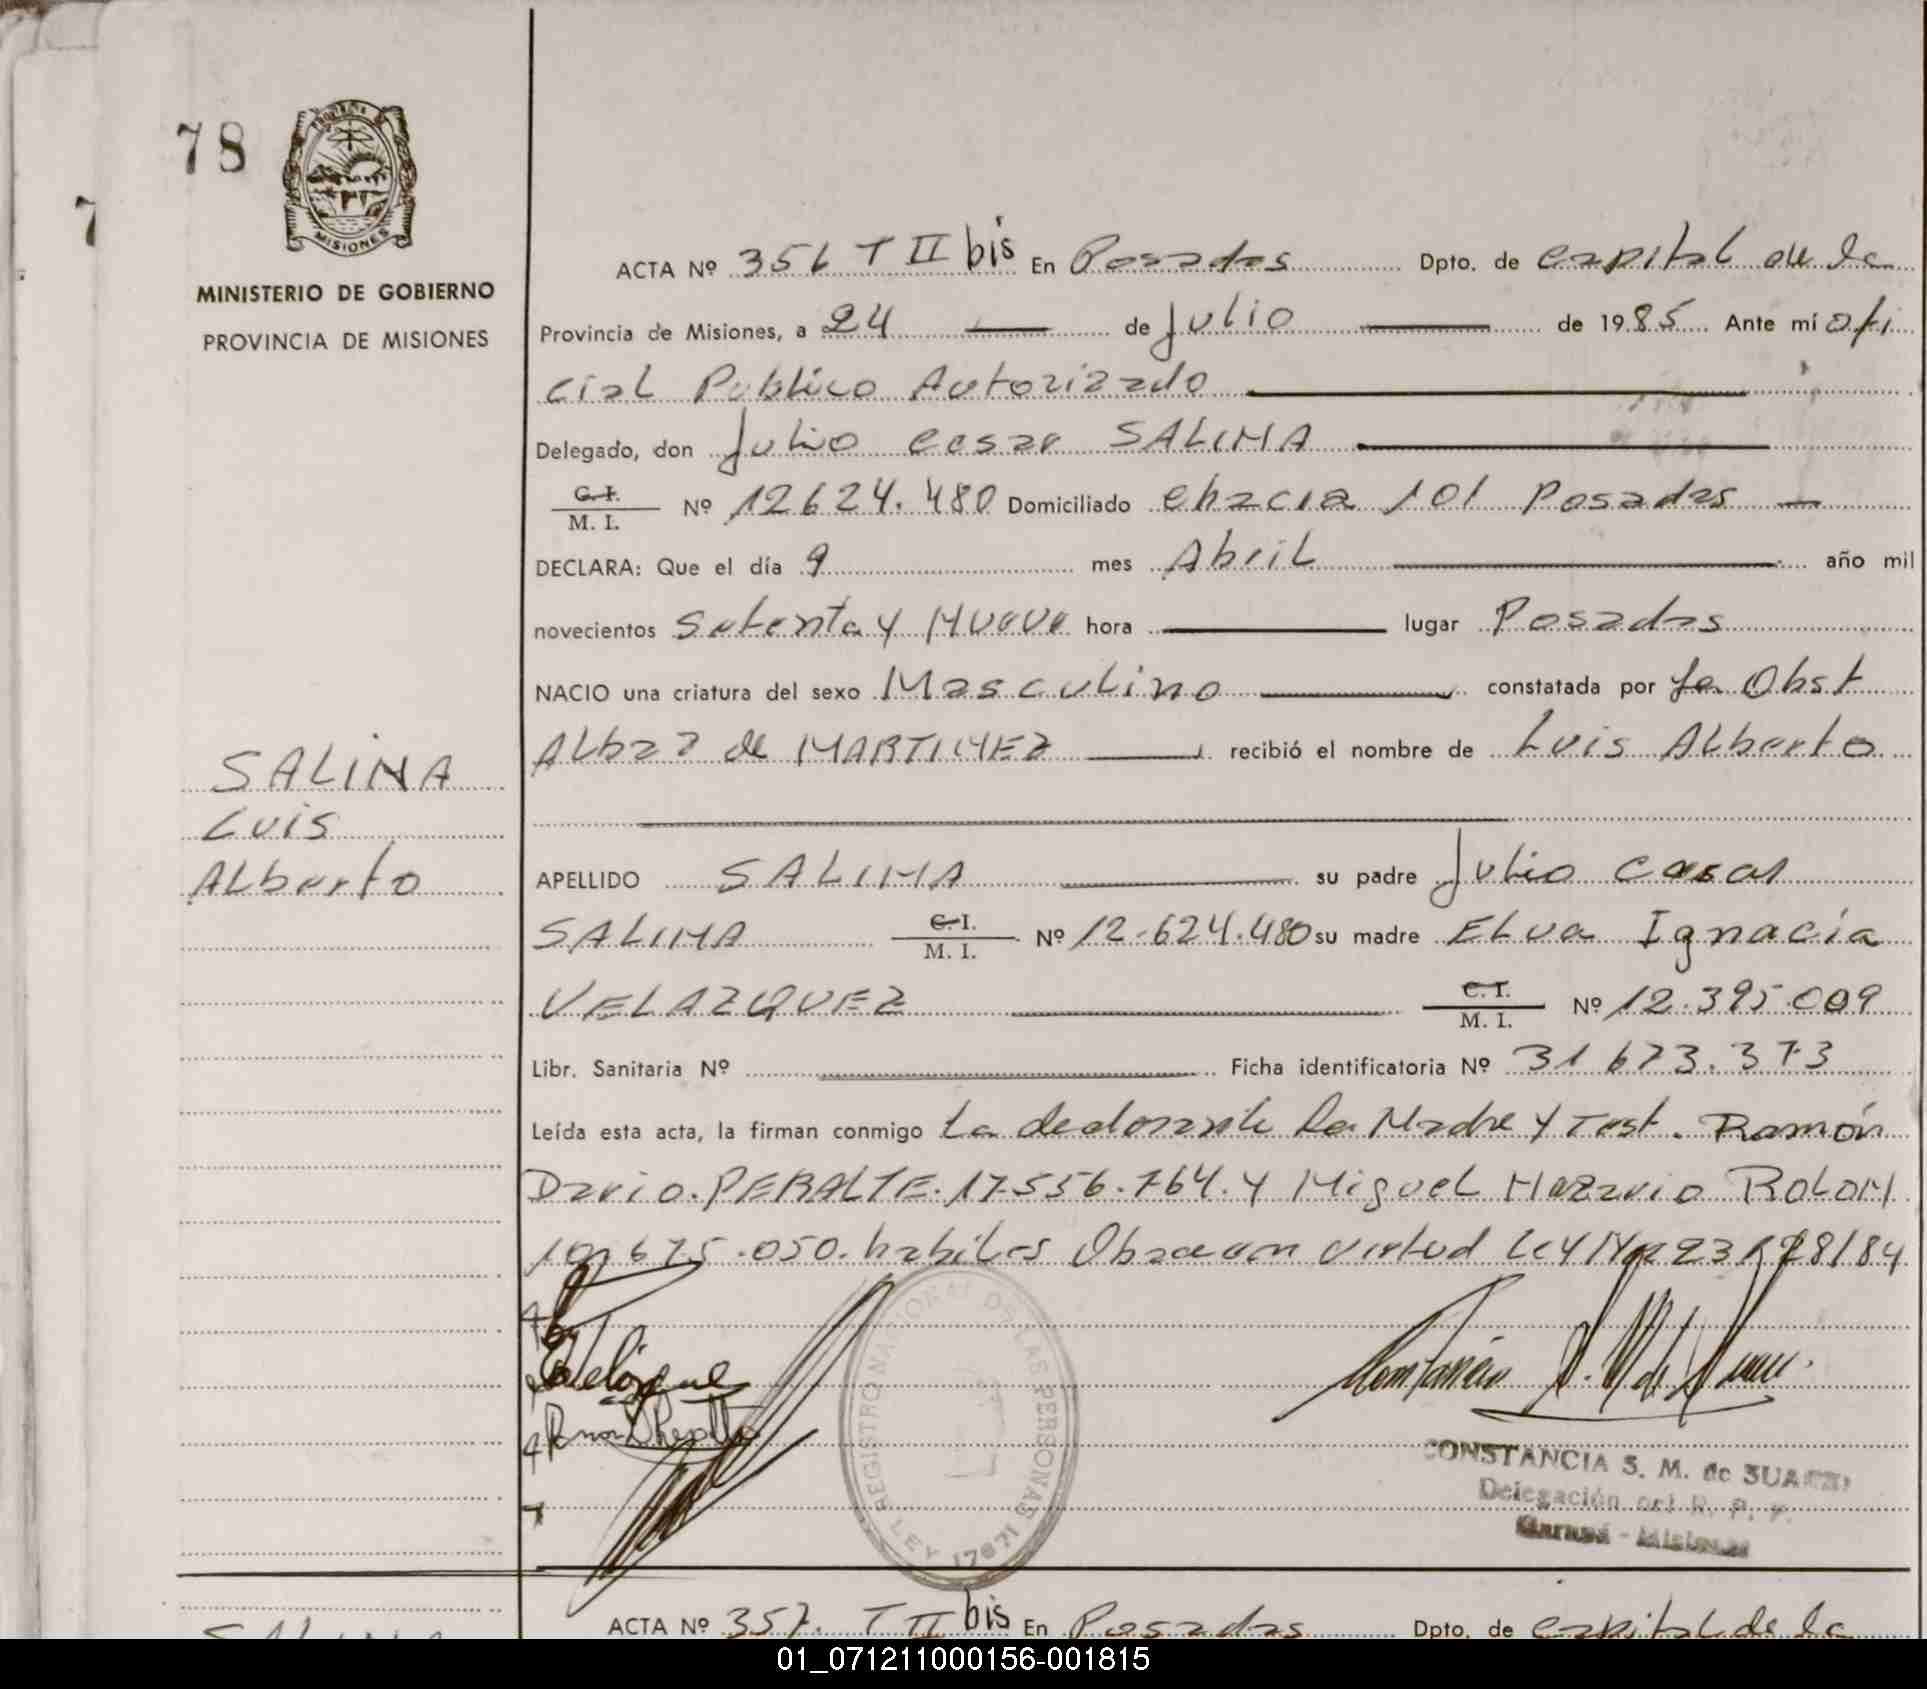 78
PROVINCIA DE
MISIONES
7
MINISTERIO DE GOBIERNO
PROVINCIA DE MISIONES
ACTA Nº 356 T II bis En Posadas Dpto. de capital de la
Provincia de Misiones, a 24 de Julio de 1985 Ante mí ofi
cial Publico Autorizado
Delegado, don Julio Cesar SALINA
C.I. / M. I. Nº 12624.480 Domiciliado Chacra 101 Posadas
DECLARA: Que el día 9 mes Abril año mil
novecientos Setenta y Nueve hora lugar Posadas
NACIO una criatura del sexo Masculino constatada por la Obst
de MARTINEZ recibió el nombre de Luis Alberto
SALINA
Luis
Alberto
APELLIDO SALINA su padre Julio Cesar
SALINA C.I. / M. I. Nº 12.624.480 su madre ELva Ignacia
VELAZQUEZ C.I. / M. I. Nº 12.395.009
Libr. Sanitaria Nº Ficha identificatoria Nº 31 673.373
Leída esta acta, la firman conmigo La declarante la Madre y Test. Ramón
Dario. PERALTE. 17.556.764. y Miguel Nazario ROLON
675.050. habiles Obra en virtud Ley Nº 23 /84
REGISTRO NACIONAL DE LAS PERSONAS
LEY 17671
CONSTANCIA S. M. de SUAREZ
Delegación del R. P. P.
Garupá - Misiones
ACTA Nº 357. T II bis En Posadas Dpto. de capital de la
SALINA
01_071211000156-001815